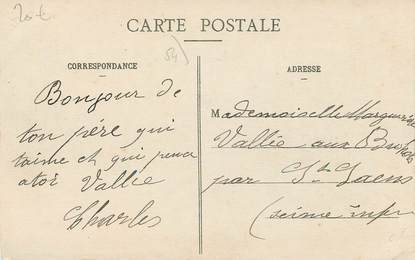 20 €
CARTE POSTALE
54)
CORRESPONDANCE
ADRESSE
Bonjour de
ton père qui
taime et qui pense
atoi Vallée
Charles
Mademoiselle Marguerite
Vallée aux
par St Saens
(seine infr